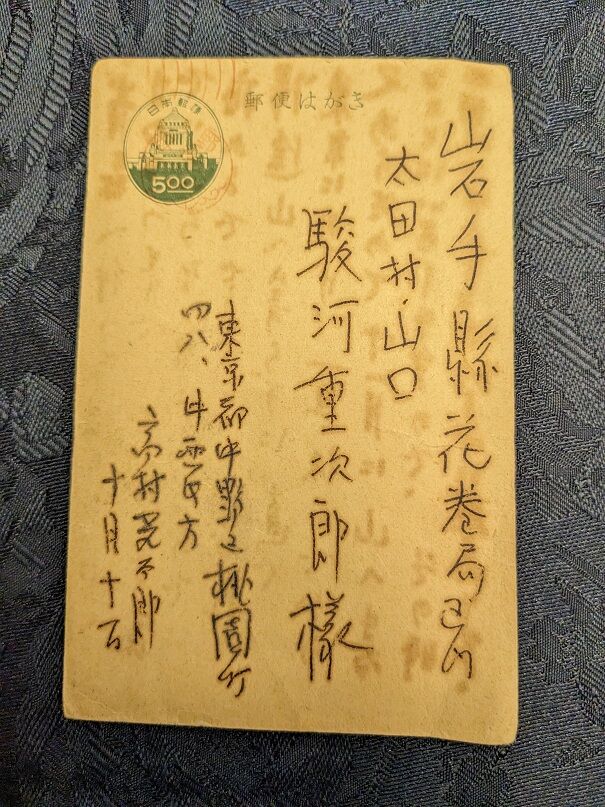 郵便はがき
日本郵便
5.00
岩手縣花巻局区内
太田村山口
駿河重次郎様
東京都中野区桃園町
四八、中西氏方
高村光太郎
十月十一日